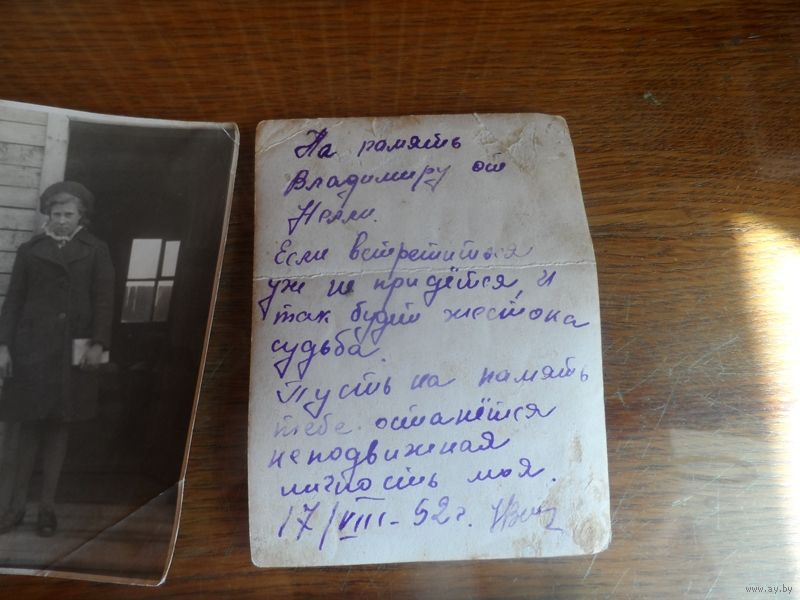 На память
Владимиру от
Нелли.
Если встретиться
уже не придётся, и
так будет жестока
судьба.
Пусть на память
тебе останется
неподвижная
личность моя.
17/VIII-52 г.
www.ay.by